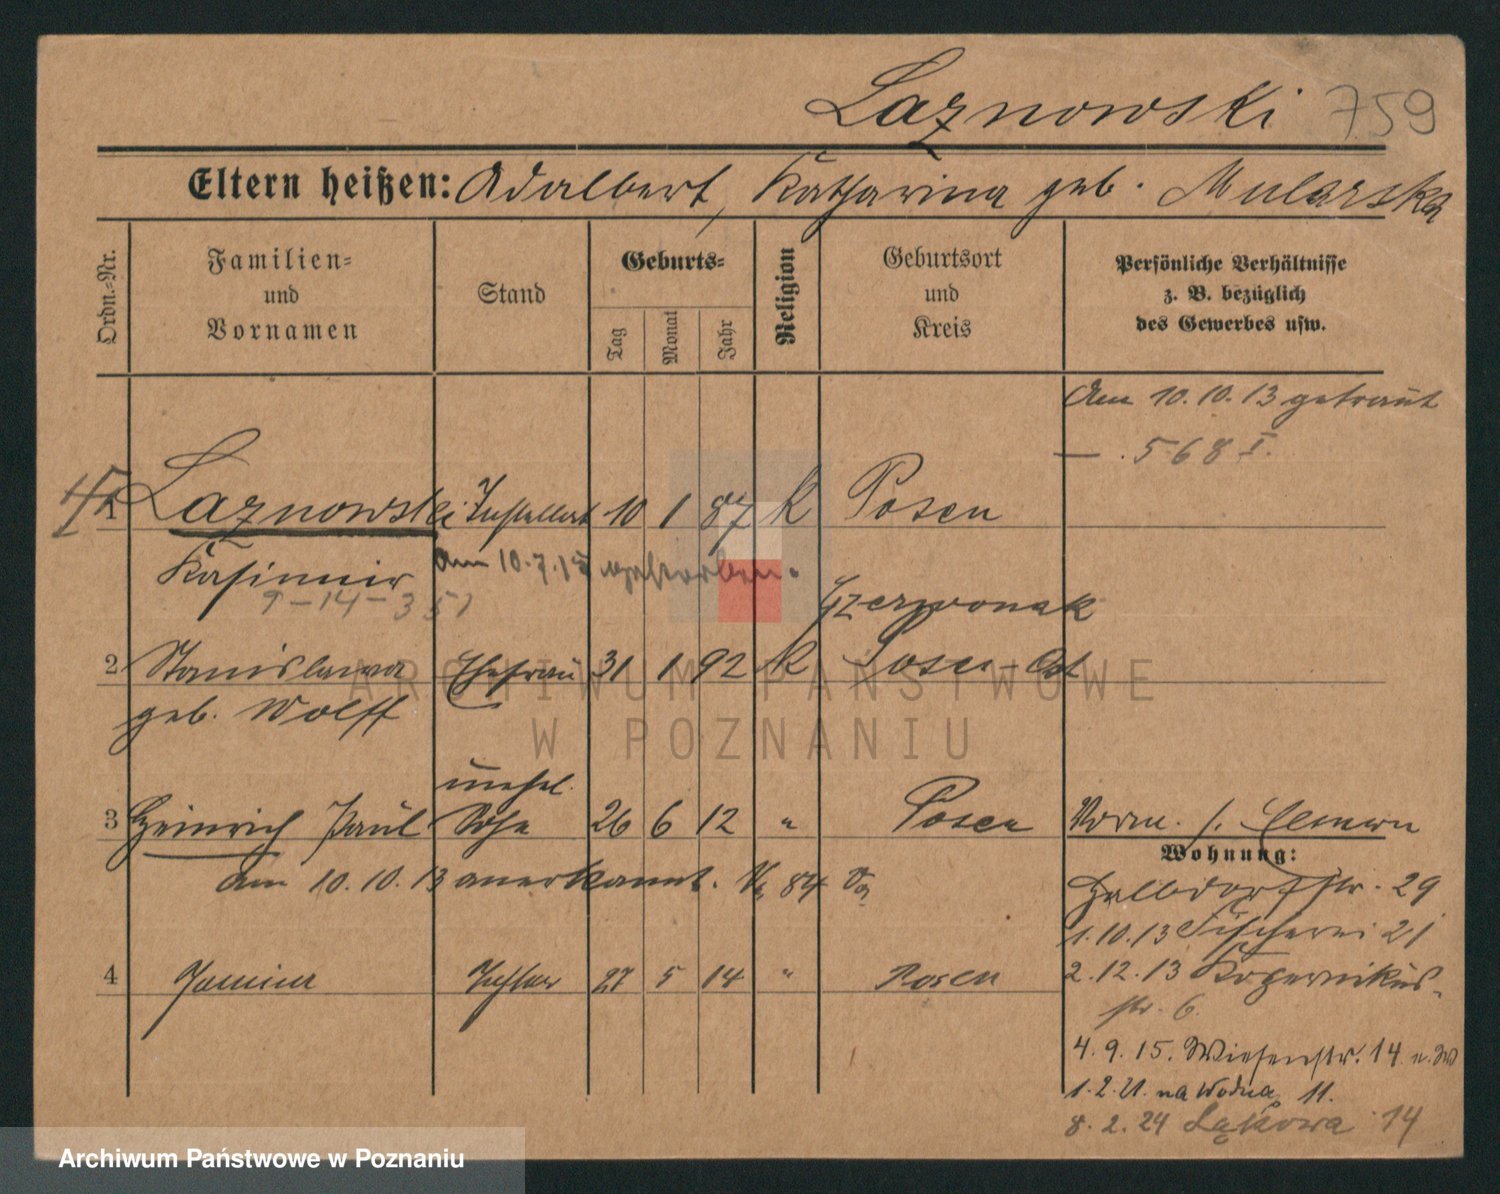 Laznowski 759
Eltern heißen: Adalbert, Katharina geb. Mularska
Ordn.-Nr.
Familien-
und
Vornamen
Stand
Geburts-
Tag
Monat
Jahr
Religion
Geburtsort
und
Kreis
Persönliche Verhältnisse
z. B. bezüglich
des Gewerbes usw.
Am 10.10.13 getraut
568 I.
1 Laznowski Installat 10 1 87 k Posen
Kasimir am 10.7.15 gestorben.
9-14-351
Czerwonak
2 Stanislawa Ehefrau 31 1 92 k Posen-Ost
geb. Wolff
unehel.
3 Heinrich Paul Sohn 26 6 12 " Posen
am 10.10.13 anerkannt. 84
Wohnung:
Halbdorfstr. 29
1.10.13 Fischerei 21
4 Tochter 27 5 14 " Posen
2.12.13 Kopernikus-
str. 6.
4.9.15. Wiesenstr. 14
1.2.21. na Wodna 11.
8.2.24 Łąkowa 14
ARCHIWUM PAŃSTWOWE
W POZNANIU
Archiwum Państwowe w Poznaniu